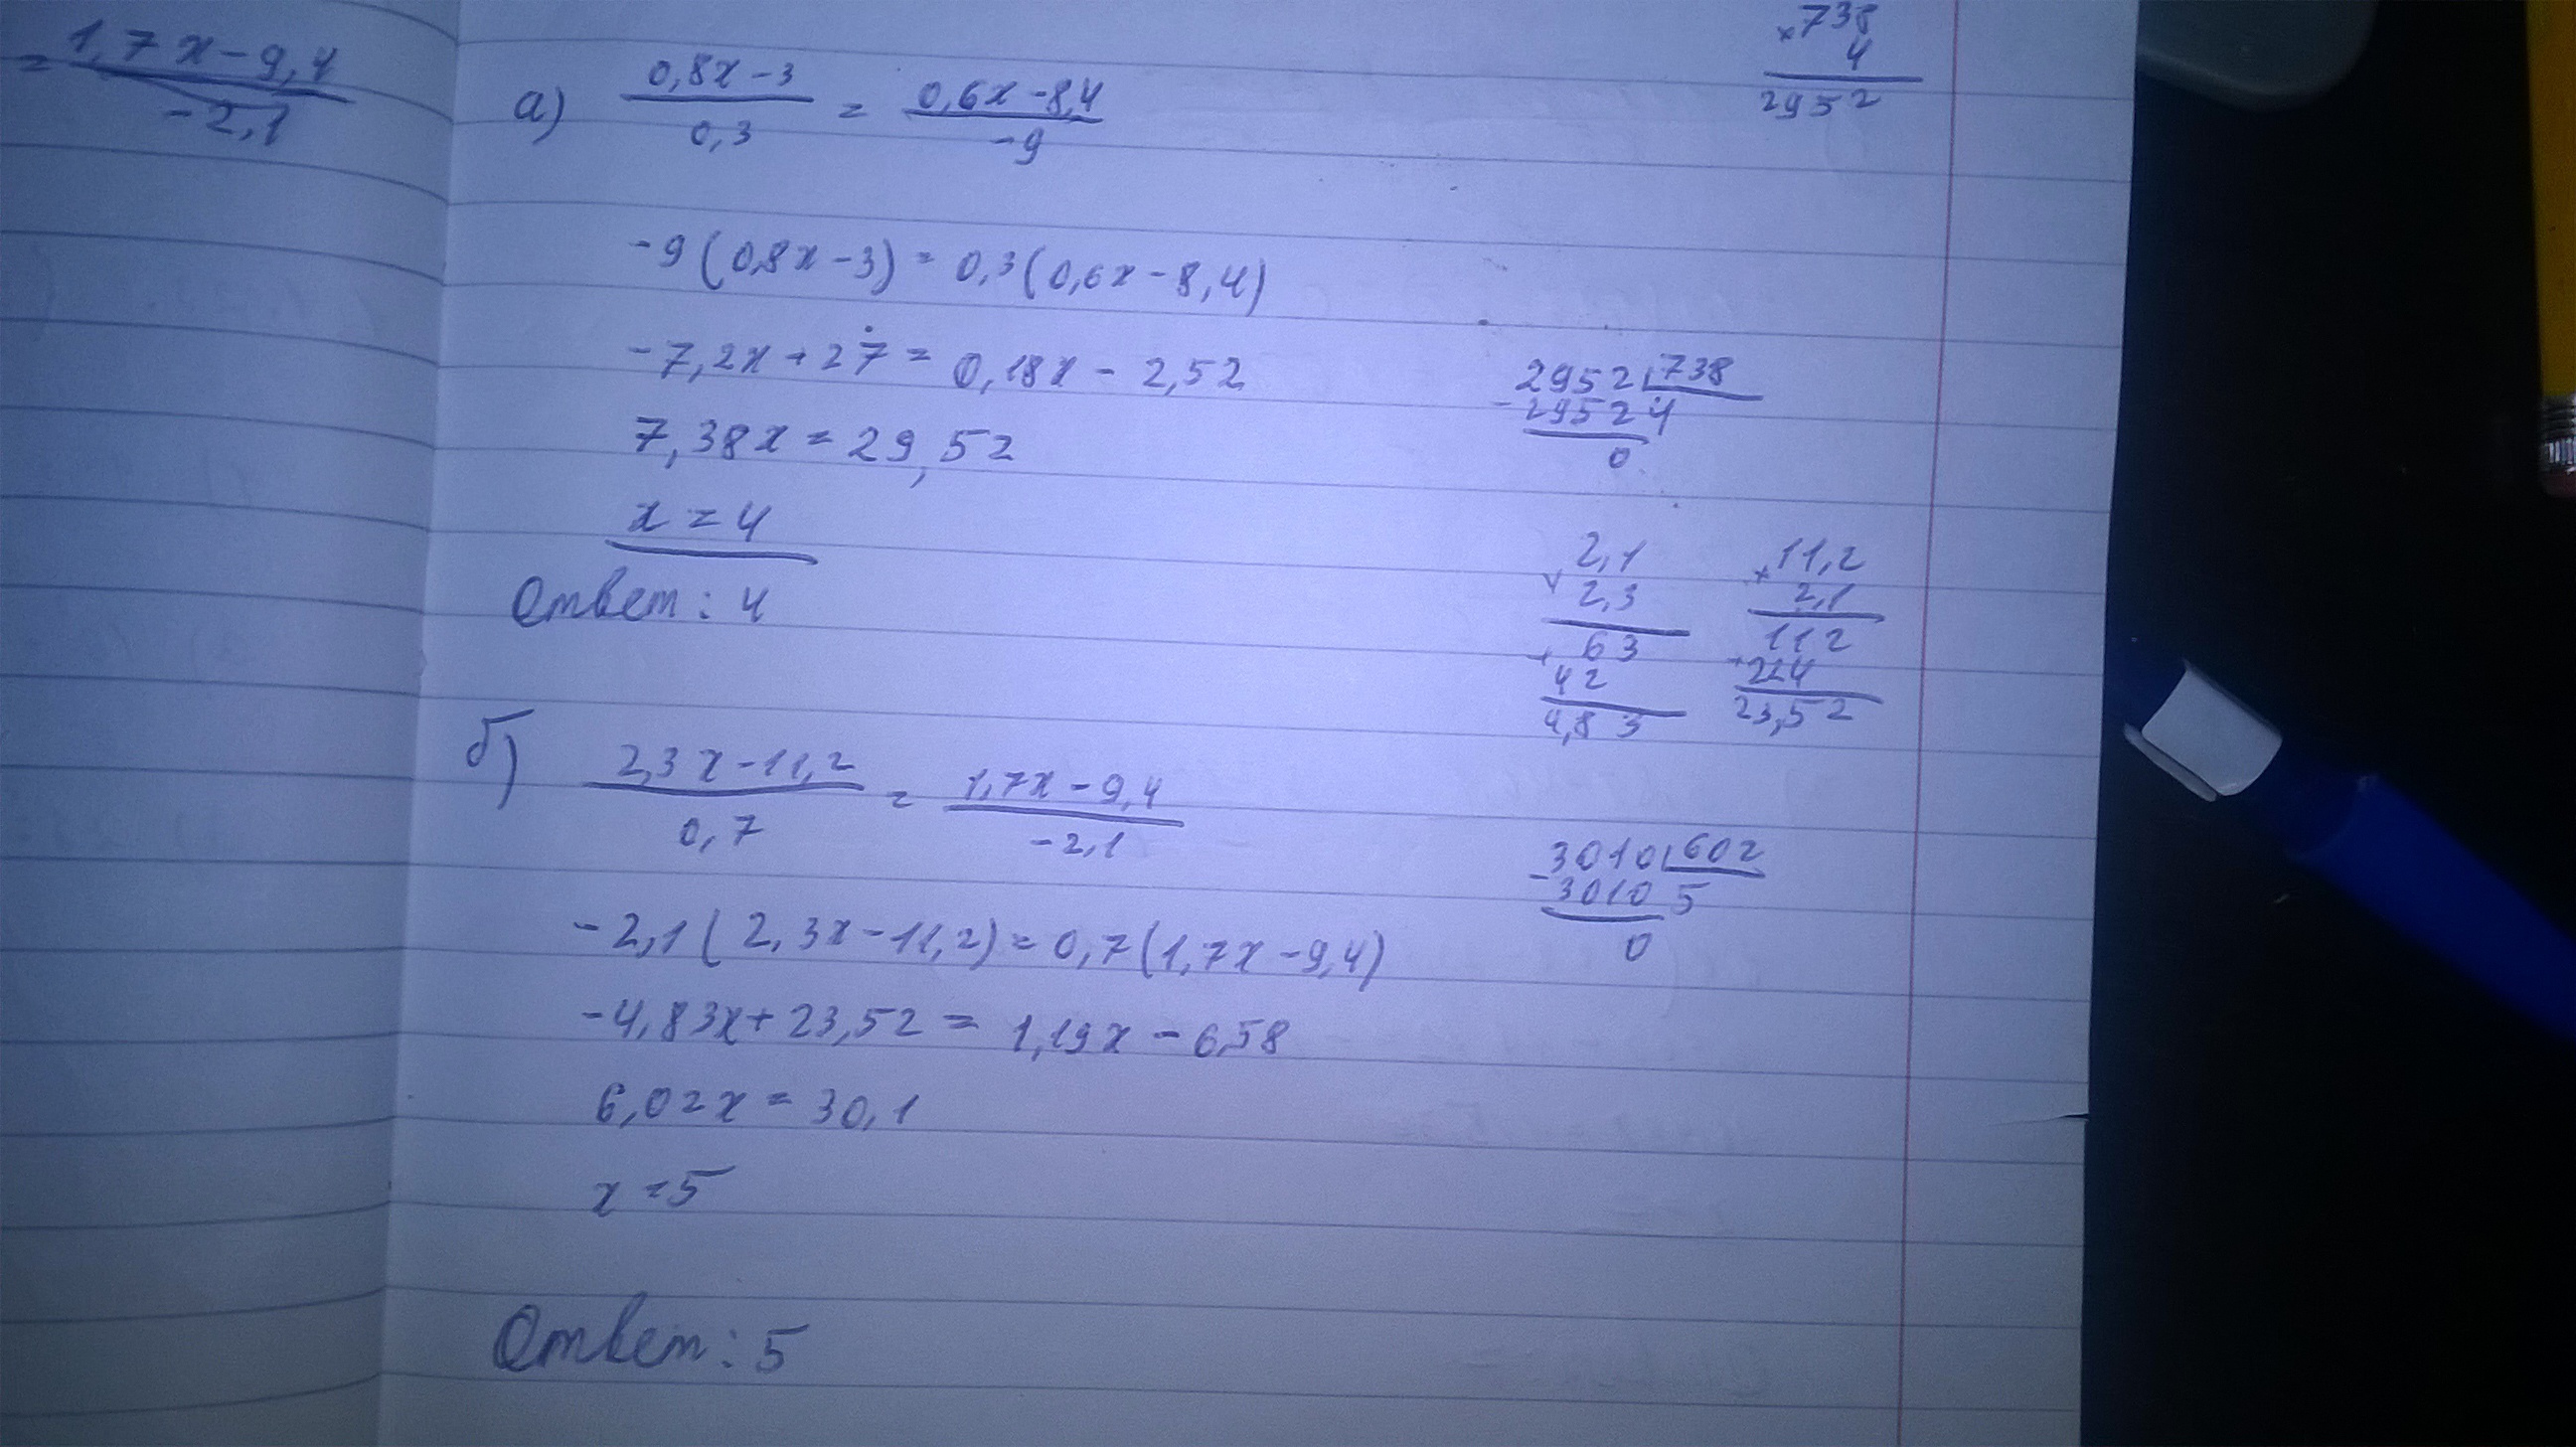 = (1,7x-9,4)/(-2,1)
а) (0,8x-3)/0,3 = (0,6x-8,4)/(-9)
-9(0,8x-3) = 0,3(0,6x-8,4)
-7,2x+27 = 0,18x - 2,52
7,38x = 29,52
x = 4
Ответ: 4
б) (2,3x-11,2)/0,7 = (1,7x-9,4)/(-2,1)
-2,1(2,3x-11,2) = 0,7(1,7x-9,4)
-4,83x+23,52 = 1,19x - 6,58
6,02x = 30,1
x = 5
Ответ: 5
×738
4
2952
2952 | 738
-2952 4
0
× 2,1
2,3
63
+ 42
4,83
× 11,2
2,1
112
+ 224
23,52
3010 | 602
-3010 5
0